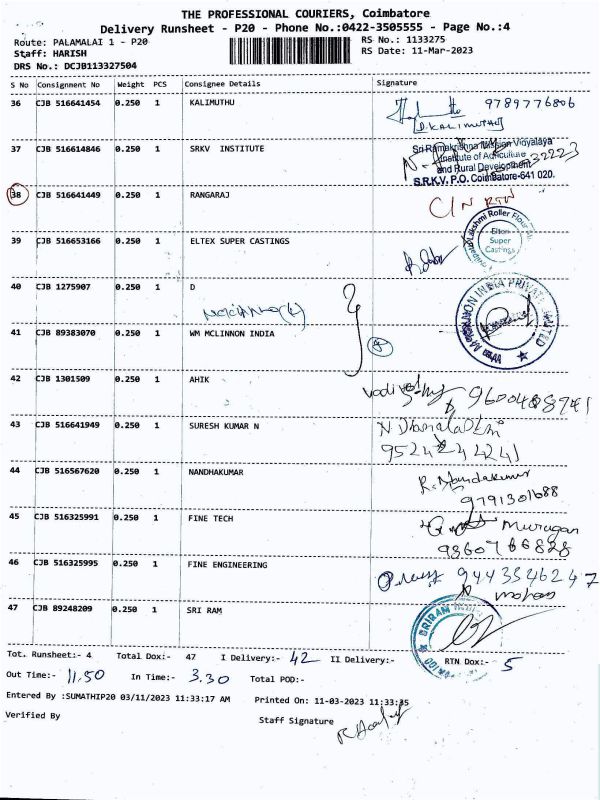 THE PROFESSIONAL COURIERS, Coimbatore
Delivery Runsheet - P20 - Phone No.:0422-3505555 - Page No.:4
Route: PALAMALAI 1 - P20
RS No.: 1133275
Staff: HARISH
RS Date: 11-Mar-2023
DRS No.: DCJB113327504
S No Consignment No Weight PCS Consignee Details Signature
36 CJB 516641454 0.250 1 KALIMUTHU 9789776806
(D.KALIMUTHU)
37 CJB 516614846 0.250 1 SRKV INSTITUTE Sri Ramakrishna Mission Vidyalaya
Institute of Agriculture
and Rural Development
S.R.K.V. P.O. Coimbatore-641 020.
38 CJB 516641449 0.250 1 RANGARAJ C/N RTN
39 CJB 516653166 0.250 1 ELTEX SUPER CASTINGS
Lakshmi Roller Flour
Super
Castings
40 CJB 1275907 0.250 1 D
INDIA PRIVATE LIMITED
41 CJB 89383070 0.250 1 WM MCLINNON INDIA
42 CJB 1301509 0.250 1 AHIK
43 CJB 516641949 0.250 1 SURESH KUMAR N
44 CJB 516567620 0.250 1 NANDHAKUMAR R. Nandakumar
9791301688
45 CJB 516325991 0.250 1 FINE TECH Murugan
46 CJB 516325995 0.250 1 FINE ENGINEERING
47 CJB 89248209 0.250 1 SRI RAM
SRIRAM
Tot. Runsheet:- 4 Total Dox:- 47 I Delivery:- 42 II Delivery:- RTN Dox:- 5
Out Time:- 11.50 In Time:- 3.30 Total POD:-
Entered By :SUMATHIP20 03/11/2023 11:33:17 AM Printed On: 11-03-2023 11:33:35
Verified By Staff Signature